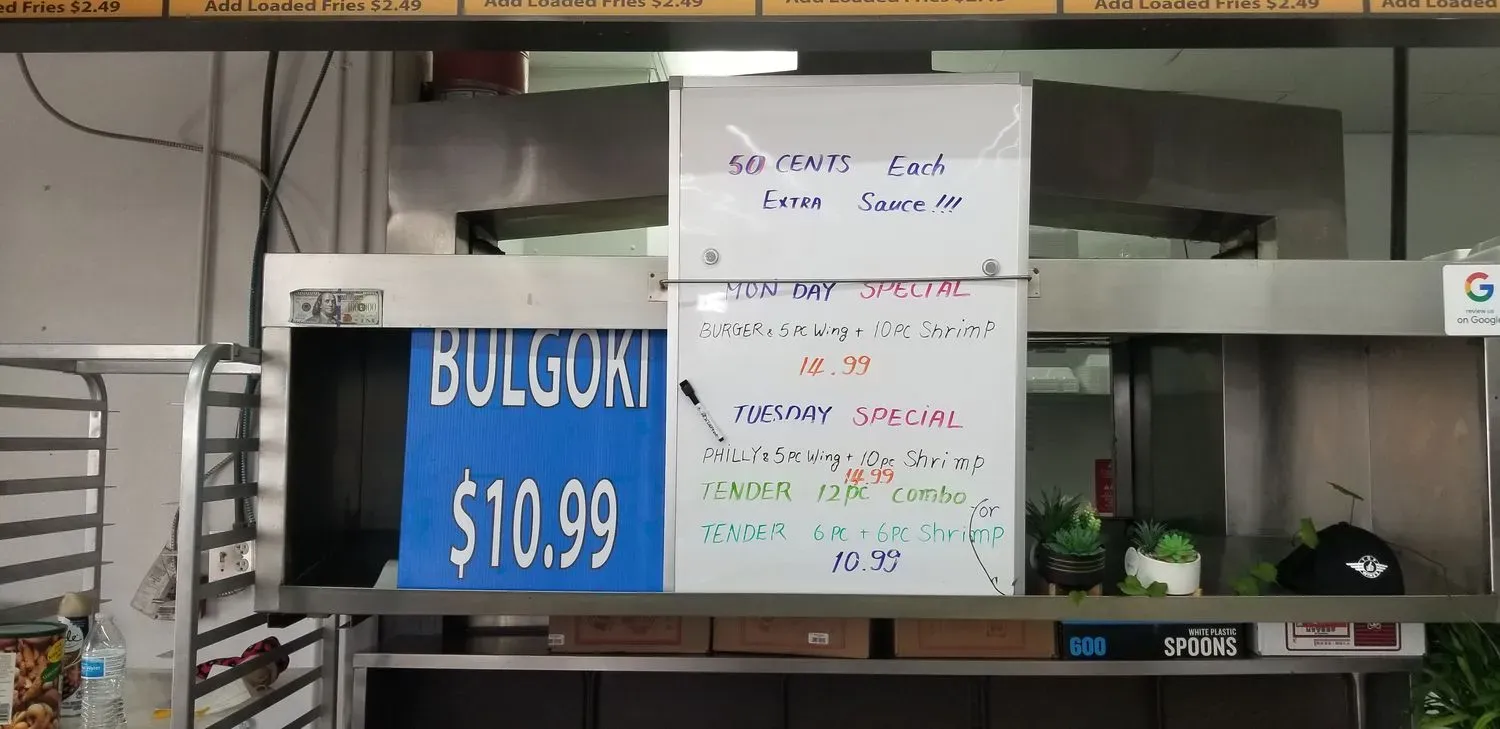 ed Fries $2.49
Add Loaded Fries $2.49
Add Loaded Fries $2.49
Add Loaded Fries $2.49
Add Loaded Fries $2.49
Add Loaded
50 CENTS Each
EXTRA Sauce !!!
MONDAY SPECIAL
BURGER & 5 PC Wing + 10 PC Shrimp
14.99
TUESDAY SPECIAL
PHILLY & 5 PC Wing + 10 pc Shrimp
14.99
TENDER 12 pc combo
or
TENDER 6 PC + 6 PC Shrimp
10.99
BULGOKI
$10.99
G
review us
on Google
600
WHITE PLASTIC
SPOONS